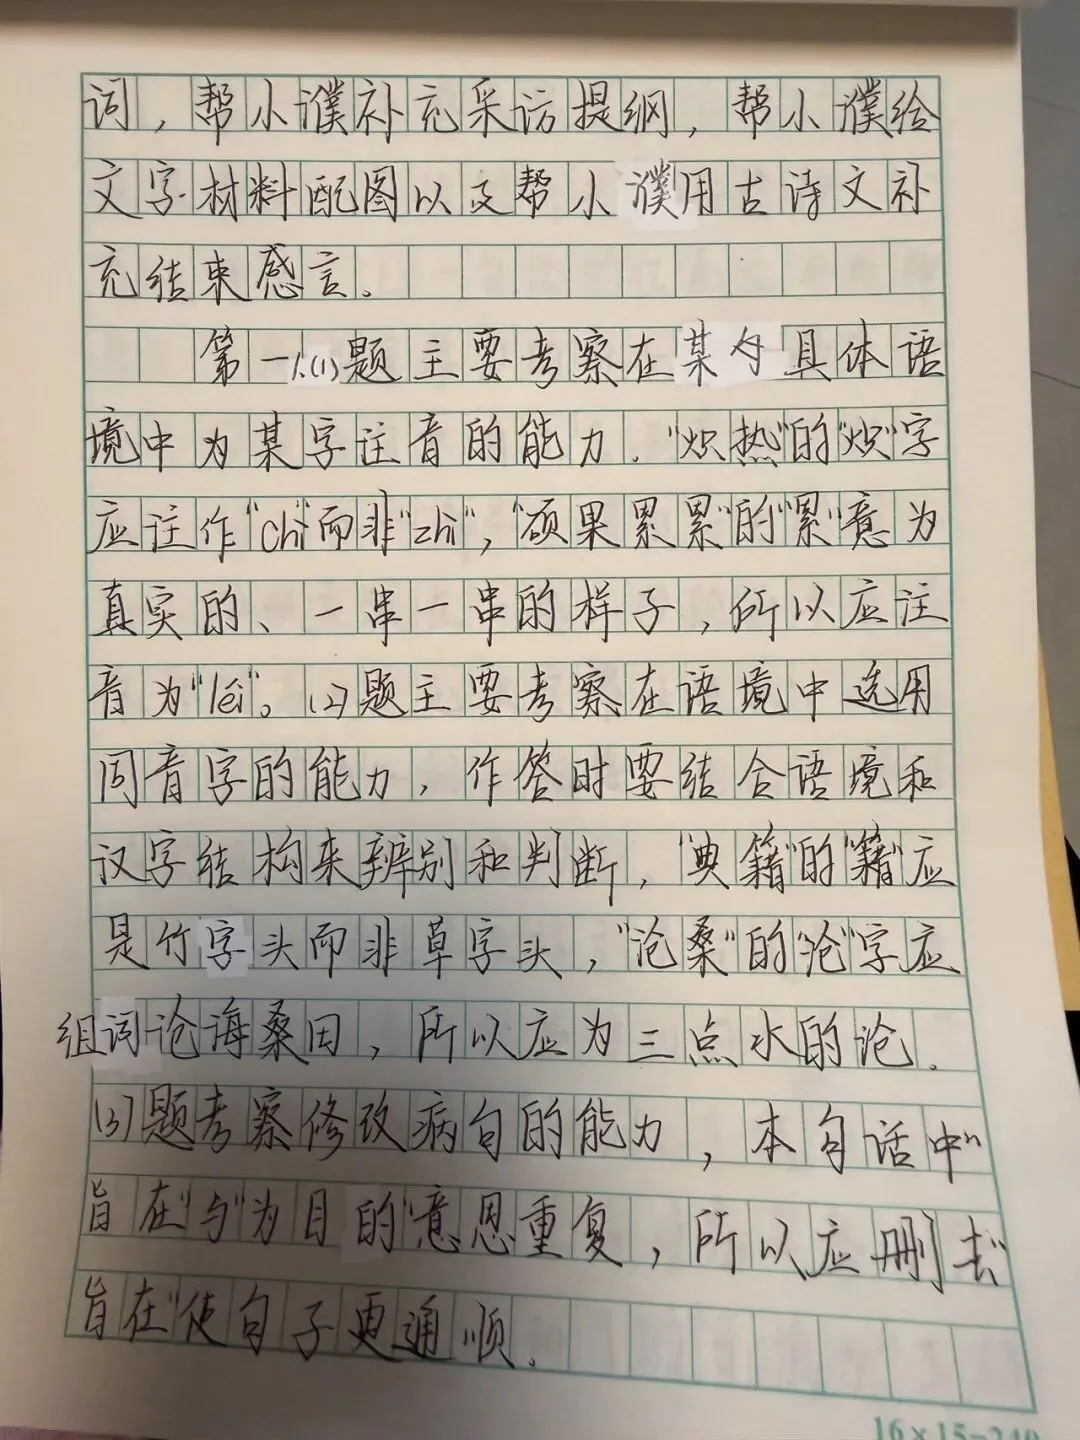 词，帮小濮补充采访提纲，帮小濮给
文字材料配图以及帮小濮用古诗文补
充结束感言。
第一、(1)题主要考察在某句具体语
境中为某字注音的能力．"炽热"的"炽"字
应注作"chì"而非"zhì"，"硕果累累"的"累"意为
真实的、一串一串的样子，所以应注
音为"léi"。(2)题主要考察在语境中选用
同音字的能力，作答时要结合语境和
汉字结构来辨别和判断，"典籍"的"籍"应
是竹字头而非草字头，"沧桑"的"沧"字应
组词沧海桑田，所以应为三点水的沧．
(3)题考察修改病句的能力，本句话中"
旨在"与"为目的"意思重复，所以应删去"
旨在"使句子更通顺．
16×15=240